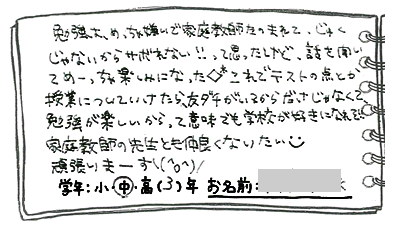 勉強は、めっちゃ嫌いで家庭教師たのまれて、じゅく
じゃないからサボれない!!って思ったけど、話を聞い
てめーっちゃ楽しみになった これでテストの点とか
授業についていけたら、友ダチがいるからだけじゃなくて、
勉強が楽しいからって意味でも学校が好きになれそう
家庭教師の先生とも仲良くなりたい
頑張りまーす\(^o^)/
学年:小・中・高(3)年 お名前: